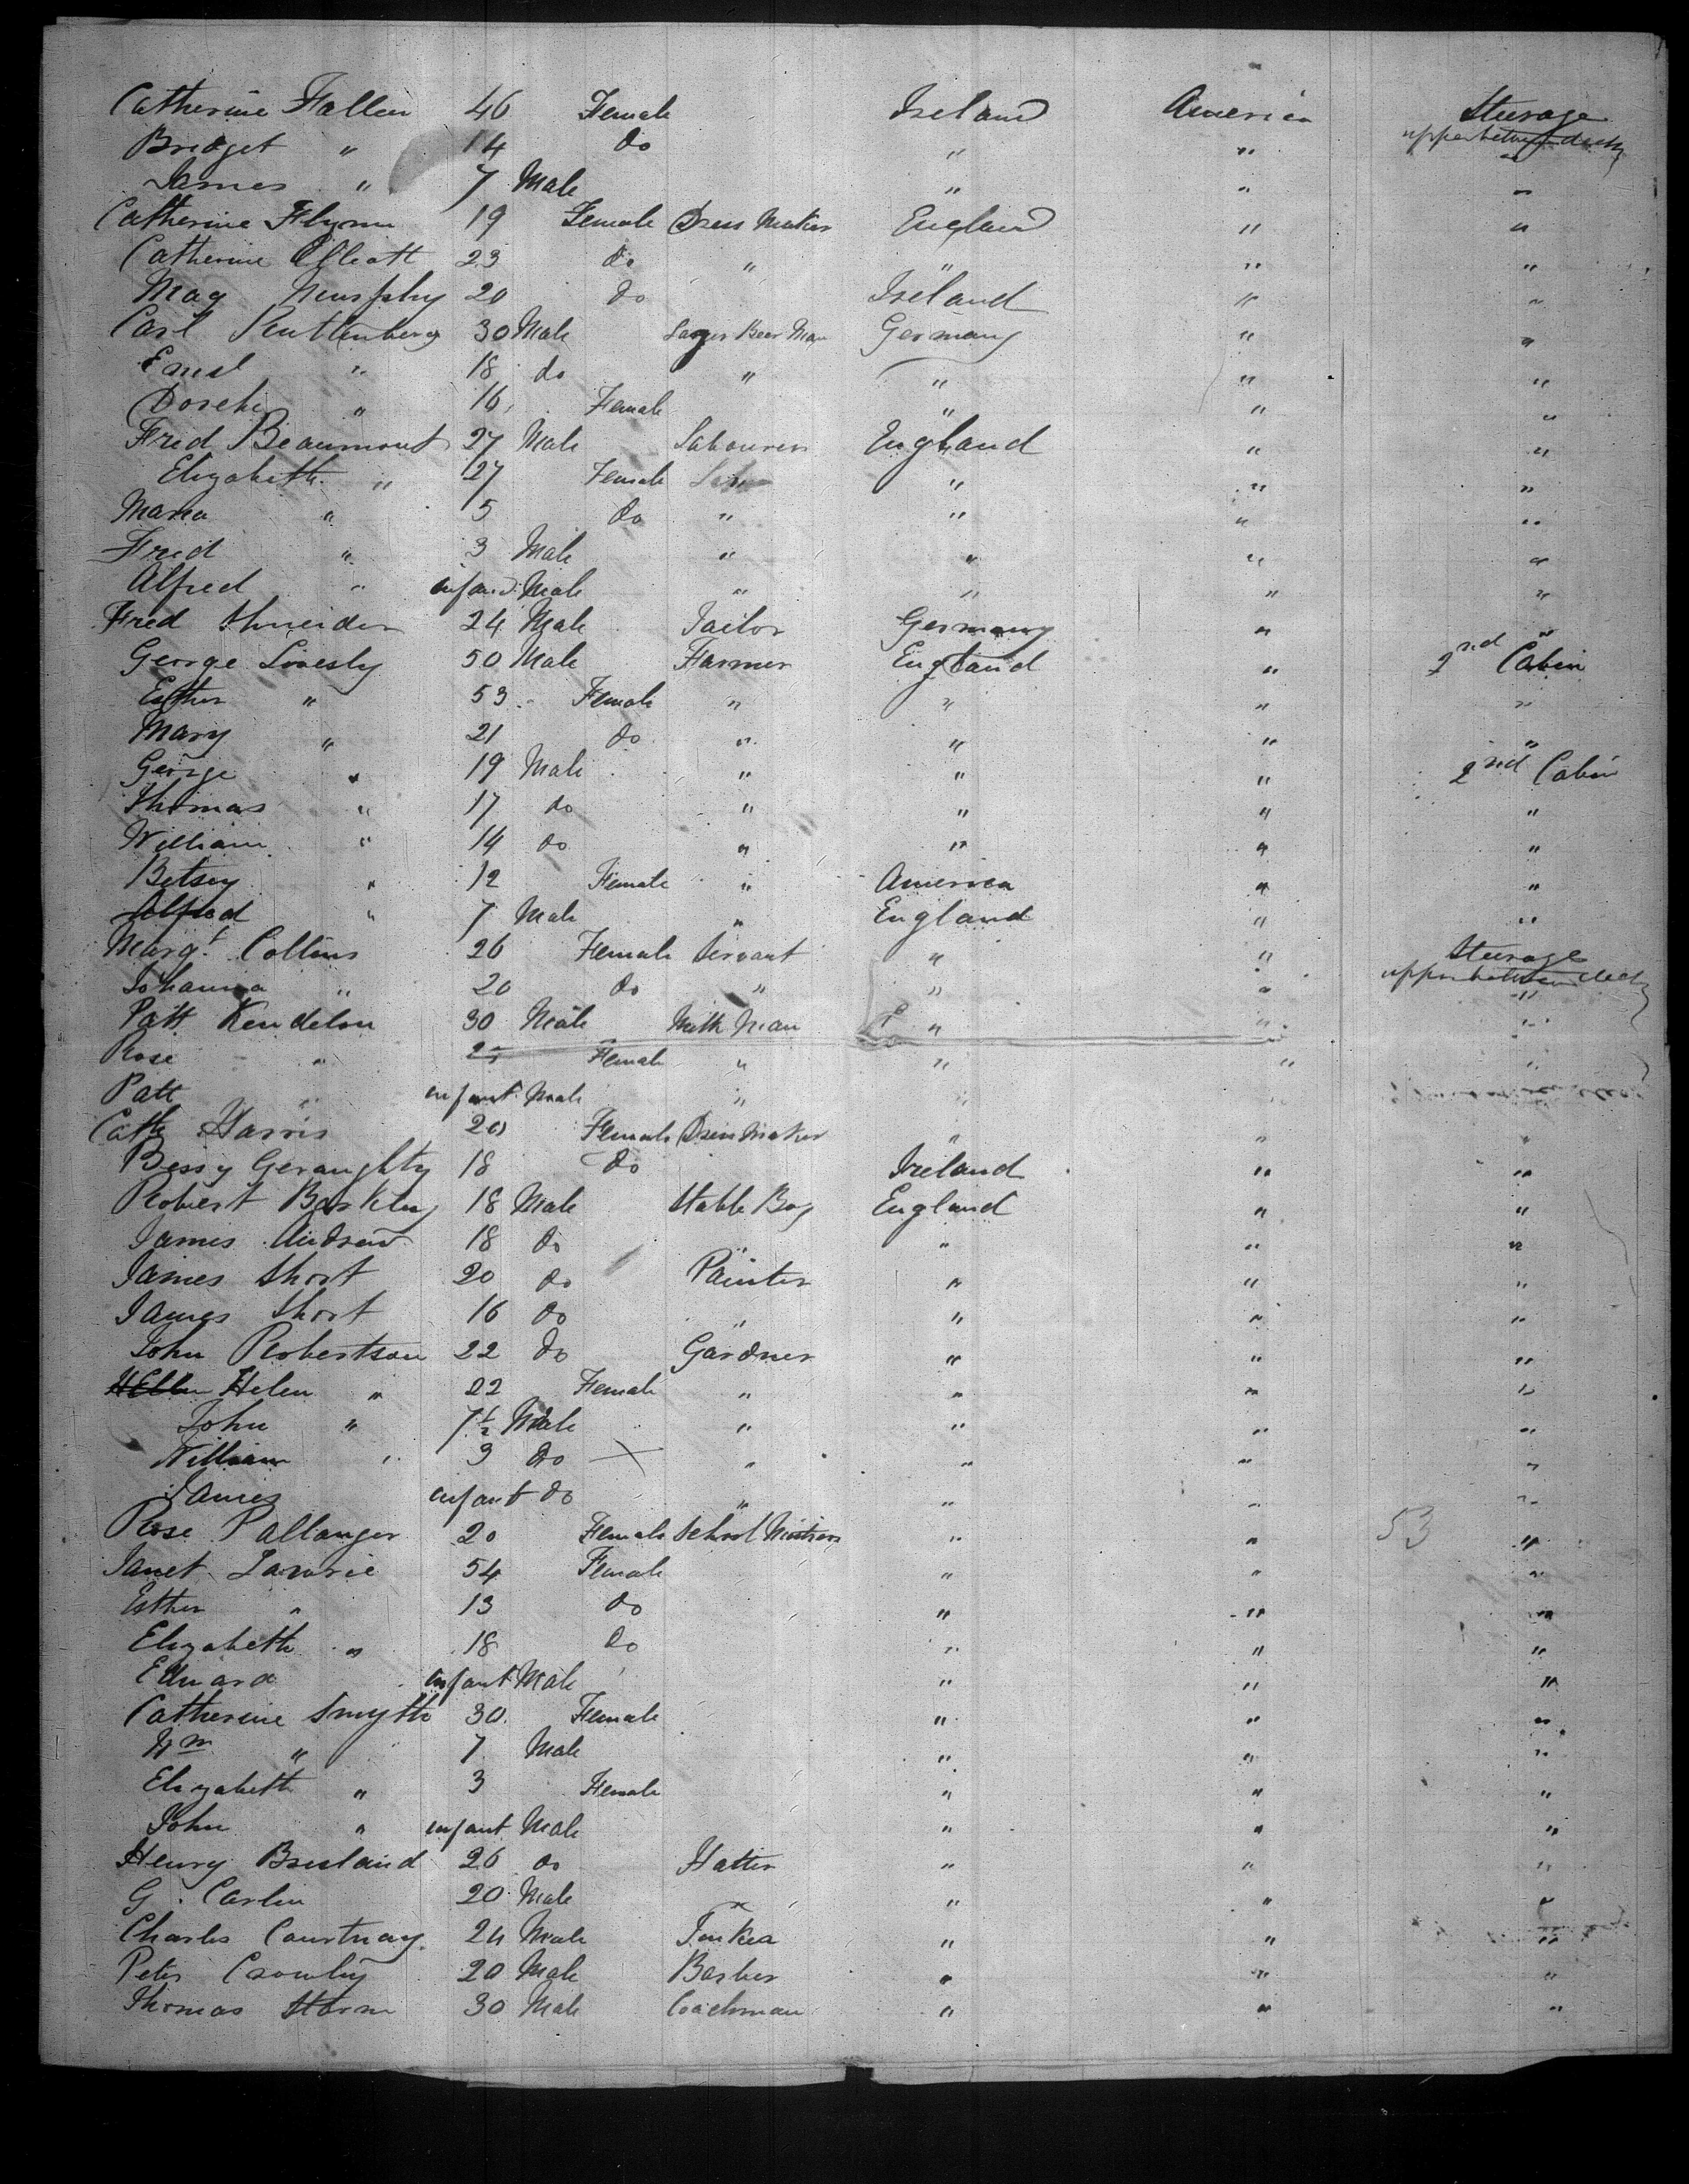 Catherine Fallen 46 Female Ireland America Steerage
Bridget " 14 do " " upper between decks "
James " 7 Male " " "
Catherine Flynn 19 Female Dress Maker England " "
Catherine Elliott 23 do " " " "
Mag Murphy 20 do Ireland " "
Carl Ruttenberg 30 Male Lager Beer Man Germany " "
" 18 do " " " "
" 16 Female " " "
Fred Beaumont 27 Male Labourer England " "
Elizabeth " 27 Female " " "
Maria " 5 do " " " "
Fred " 3 Male " " " "
Alfred " infant Male " " " "
Fred Shneider 24 Male Tailor Germany " "
George Lovesly 50 Male Farmer England " 2nd Cabin
Esther " 53 Female " " " "
Mary " 21 do " " " "
George " 19 Male " " " 2nd Cabin
Thomas " 17 do " " " "
William " 14 do " " " "
Betsey " 12 Female " America " "
Alfred " 7 Male " England " "
Margt. Collins 26 Female Servant " " Steerage
Johanna " 20 do " " " upper between decks "
Patt Kendelon 30 Male Milk Man " " "
Rose " Female " " " "
Patt " infant Male " " " "
Cath Harris 20 Female Dress Maker " " "
Bessy Geraughty 18 do Ireland " "
Robert Barkley 18 Male Stable Boy England " "
James Andrew 18 do " " " "
James Short 20 do Painter " " "
James Short 16 do " " " "
John Robertson 22 do Gardner " " "
Helen " 22 Female " " " "
John " 7½ Male " " " "
William " 3 do X " " " "
James infant do " " " "
Rose Pallanger 20 Female School Mistress " " 53 "
Janet Lawrie 54 Female " " "
Esther " 13 do " " "
Elizabeth " 18 do " " "
Edward infant Male " " "
Catherine Smyth 30 Female " " "
Wm " 7 Male " " "
Elizabeth " 3 Female " " "
John " infant Male " " "
Henry Bresland 26 do Hatter " " "
G. Carlin 20 Male " " "
Charles Courtnay 24 Male " " "
Peter Crowley 20 Male Barber " " "
Thomas Storm 30 Male Coachman " " "